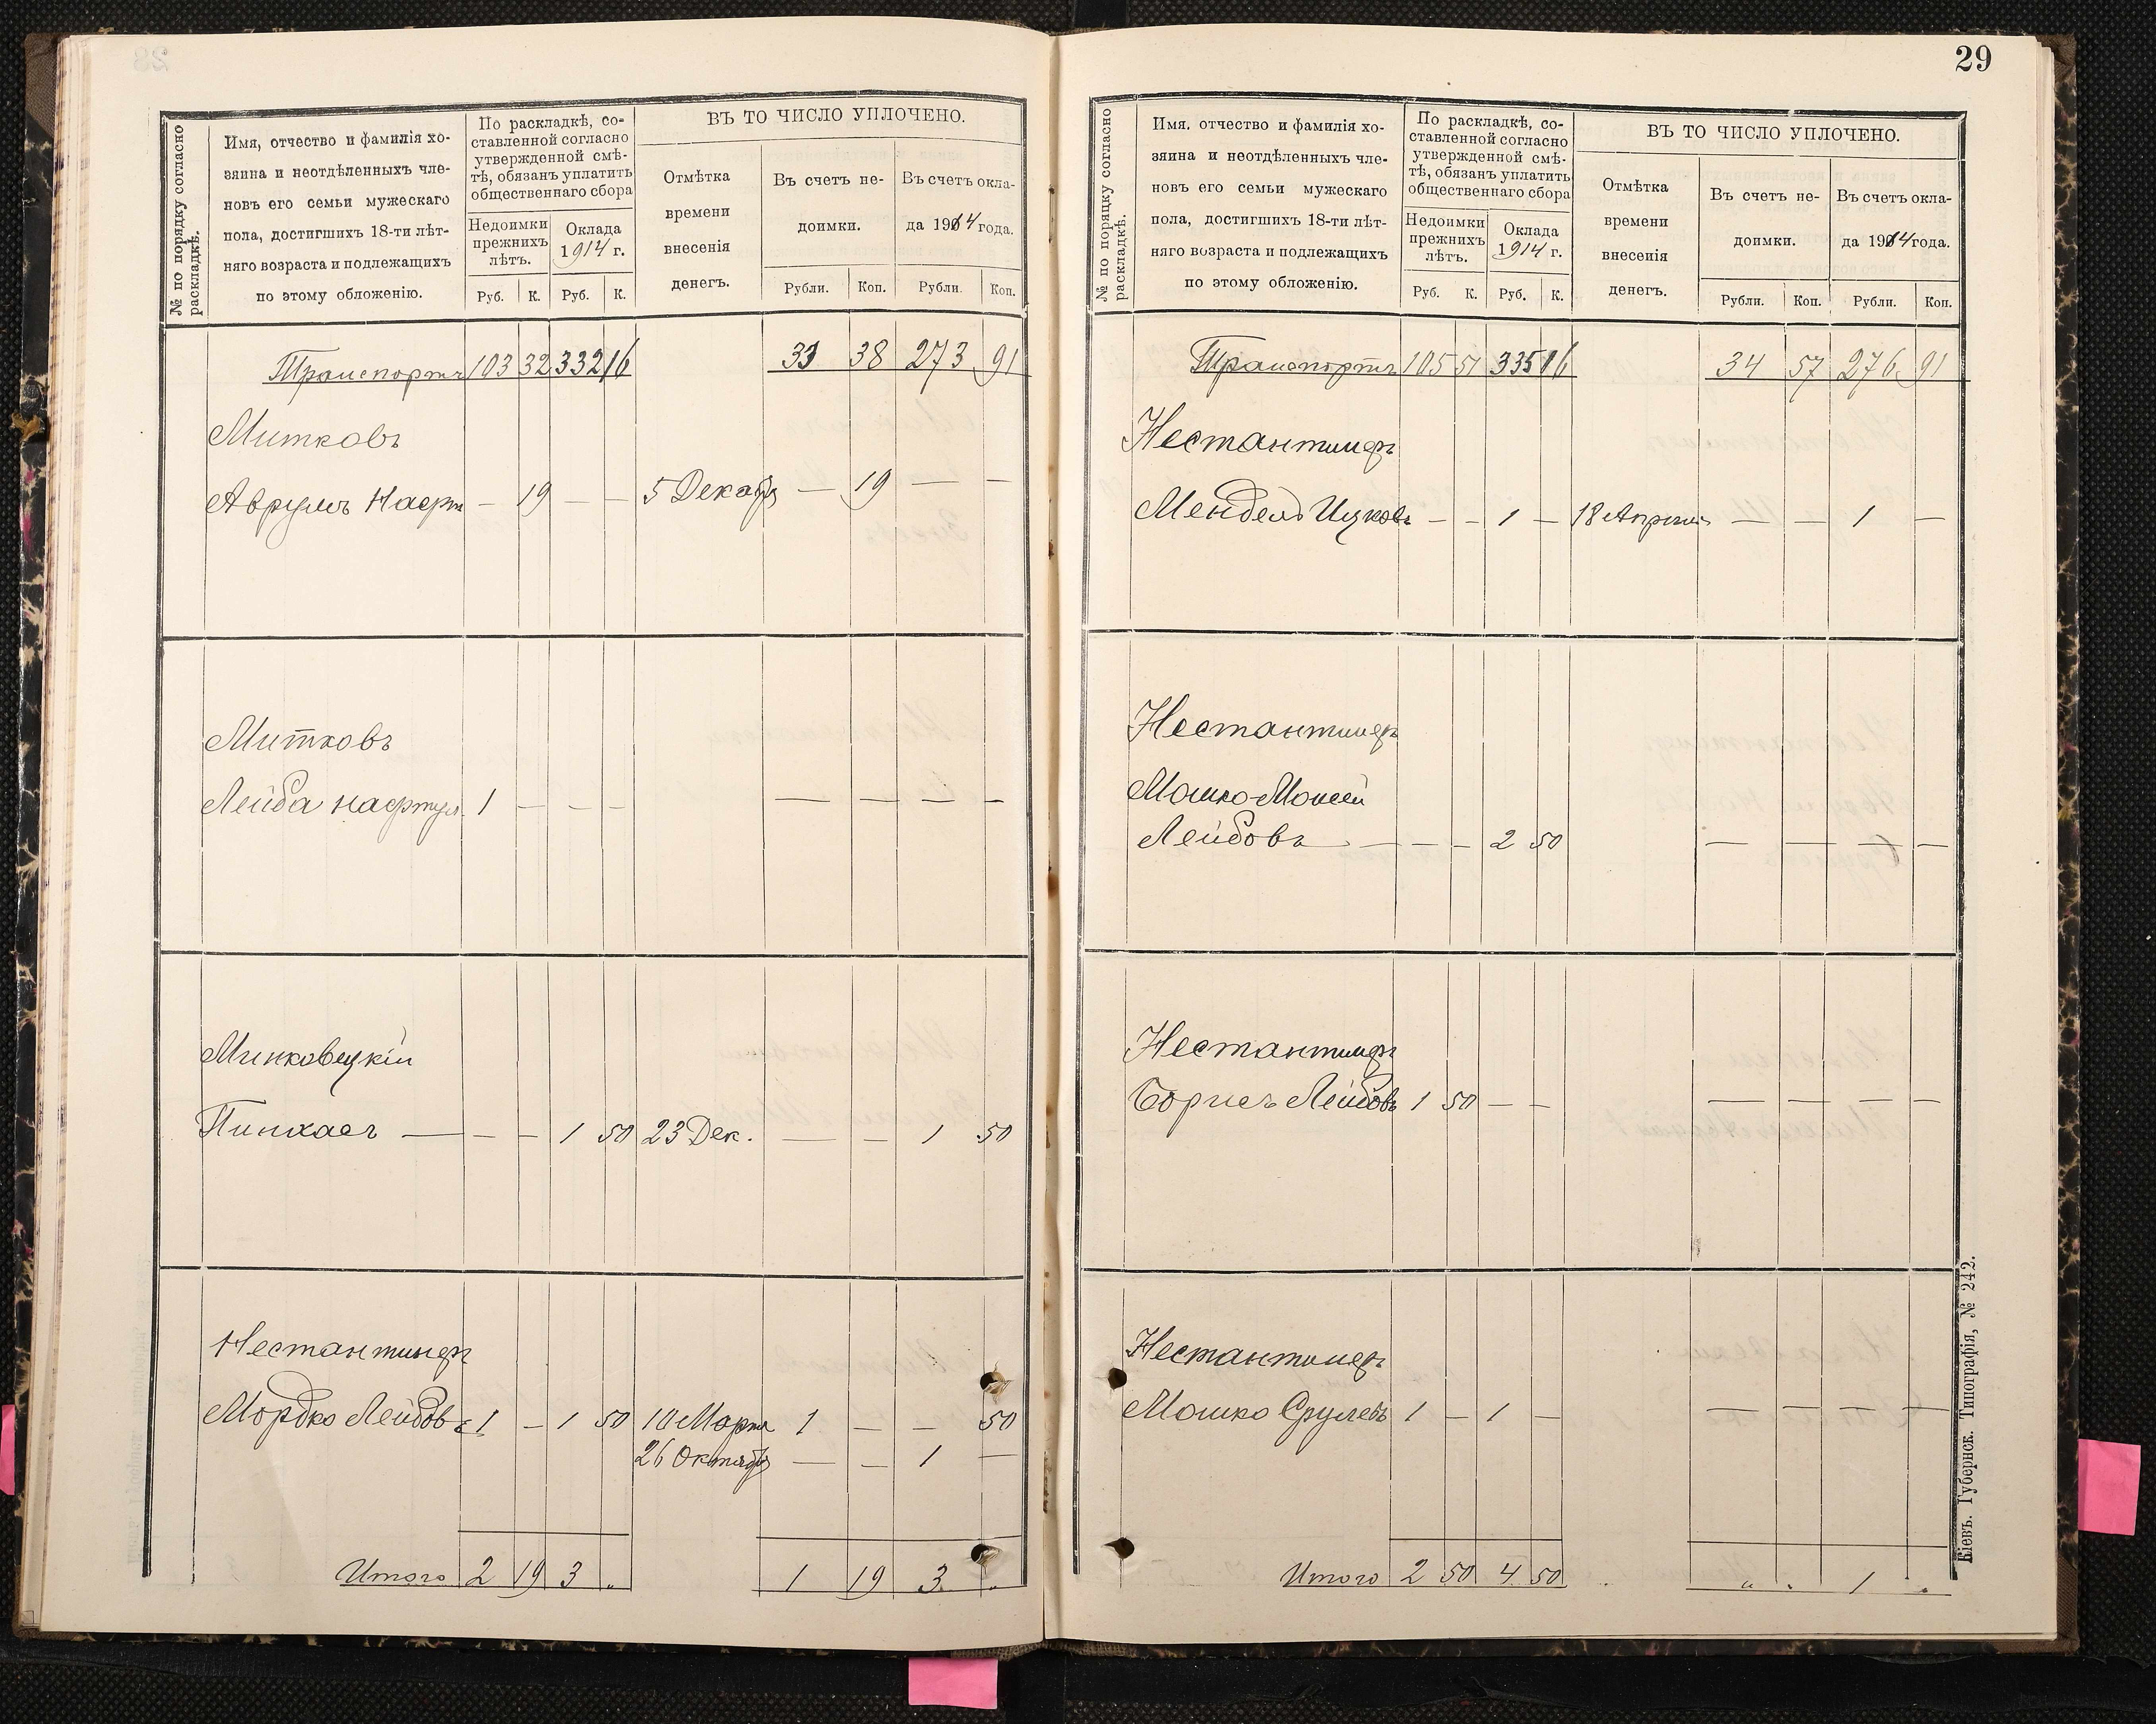 № по порядку согласно
раскладкѣ.
Имя, отчество и фамилія хо-
зяина и неотдѣленныхъ чле-
новъ его семьи мужескаго
пола, достигшихъ 18-ти лѣт-
няго возраста и подлежащихъ
по этому обложенію.
По раскладкѣ, со-
ставленной согласно
утвержденной смѣ-
тѣ, обязанъ уплатить
общественнаго сбора
Недоимки
прежнихъ
лѣтъ.
Оклада
1914 г.
Руб. К. Руб. К.
ВЪ ТО ЧИСЛО УПЛОЧЕНО.
Отмѣтка
времени
внесенія
денегъ.
Въ счетъ не-
доимки.
Въ счетъ окла-
да 1914 года.
Рубли. Коп. Рубли. Коп.
Транспортъ 103 32 332 16 33 38 273 91
Митковъ
Аврумъ Нафт — 19 — — 5 Декабр — 19 — —
Митковъ
Лейба Нафтул. 1 — — — — — — —
Минковецкій
Пинхасъ — — — 1 50 23 Дек. — — 1 50
Нестантинеръ
Мордко Лейбовъ 1 — 1 50 10 Марта 1 — — 50
26 Октябр — — 1 —
Итого 2 19 3 „ 1 19 3 „
29
№ по порядку согласно
раскладкѣ.
Имя, отчество и фамилія хо-
зяина и неотдѣленныхъ чле-
новъ его семьи мужескаго
пола, достигшихъ 18-ти лѣт-
няго возраста и подлежащихъ
по этому обложенію.
По раскладкѣ, со-
ставленной согласно
утвержденной смѣ-
тѣ, обязанъ уплатить
общественнаго сбора
Недоимки
прежнихъ
лѣтъ.
Оклада
1914 г.
Руб. К. Руб. К.
ВЪ ТО ЧИСЛО УПЛОЧЕНО.
Отмѣтка
времени
внесенія
денегъ.
Въ счетъ не-
доимки.
Въ счетъ окла-
да 1914 года.
Рубли. Коп. Рубли. Коп.
Транспортъ 105 51 335 16 34 57 276 91
Нестантинеръ
Мендель Ицковъ — — 1 — 18 Апреля — — 1 —
Нестантинеръ
Мошко-Моисей
Лейбовъ — — — 2 50 — — — —
Нестантинеръ
Борисъ Лейбовъ 1 50 — — — — — —
Нестантинеръ
Мошко Срулевъ 1 — 1 — — — — —
Итого 2 50 4 50 „ „ 1 „
Кіевъ. Губернск. Типографія, № 242.